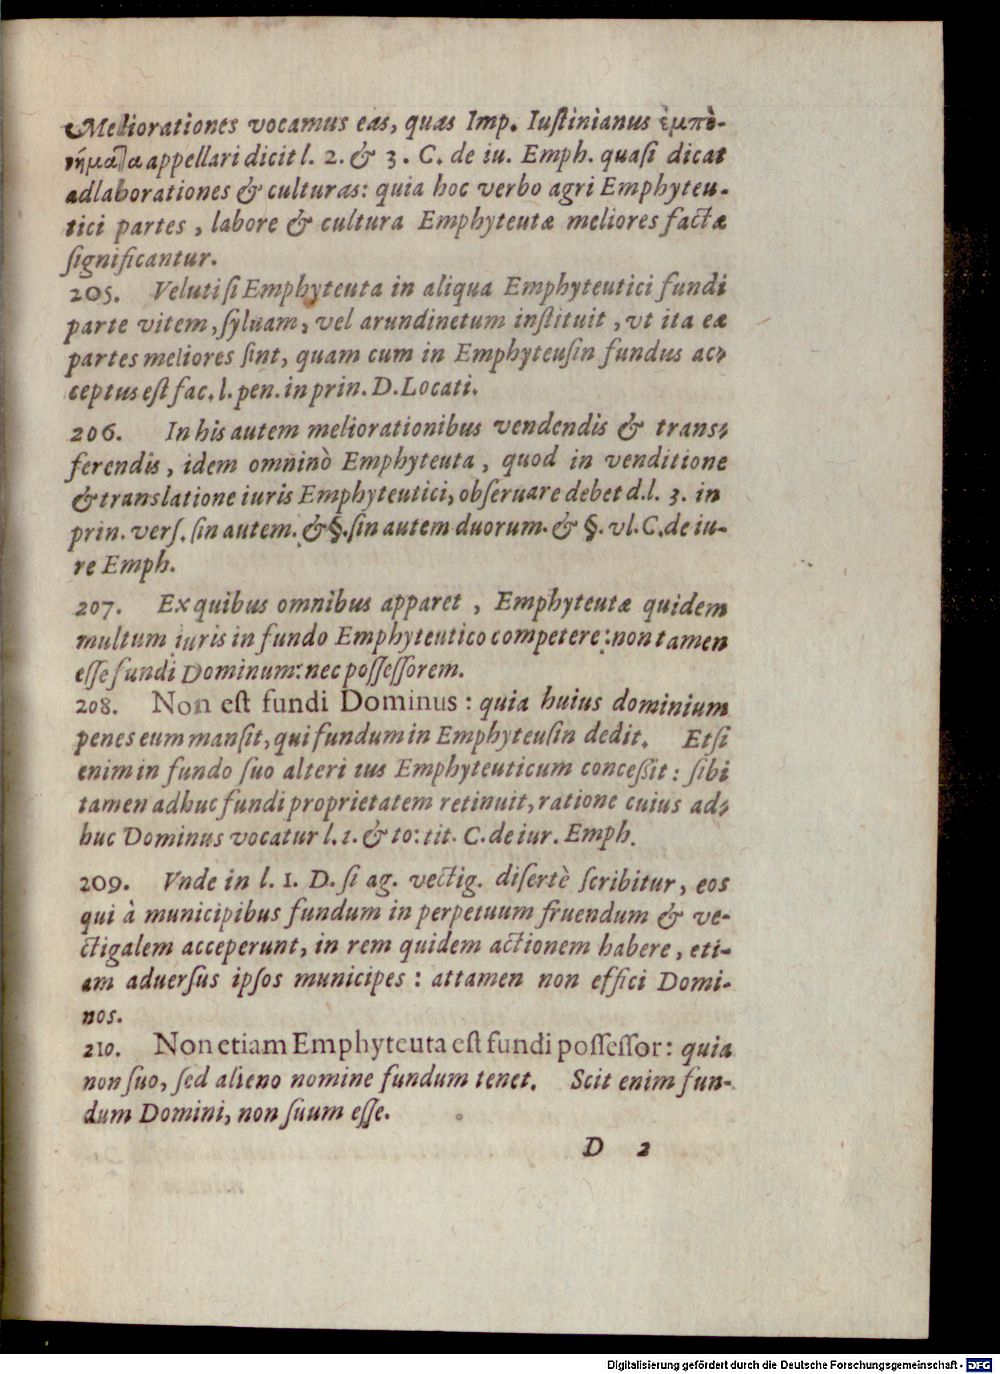 Meliorationes vocamus eas, quas Imp. Iustinianus ἐμπο-
νήματα appellari dicit l. 2. & 3. C. de iu. Emph. quasi dicat
adlaborationes & culturas: quia hoc verbo agri Emphyteu-
tici partes, labore & cultura Emphyteutæ meliores factæ
significantur.
205. Veluti si Emphyteuta in aliqua Emphyteutici fundi
parte vitem, syluam, vel arundinetum instituit, vt ita eæ
partes meliores sint, quam cum in Emphyteusin fundus ac-
ceptus est fac. l. pen. in prin. D. Locati.
206. In his autem meliorationibus vendendis & trans-
ferendis, idem omninò Emphyteuta, quod in venditione
& translatione iuris Emphyteutici, obseruare debet d. l. 3. in
prin. vers. sin autem. & §. sin autem duorum. & §. vl. C. de iu-
re Emph.
207. Ex quibus omnibus apparet, Emphyteutæ quidem
multum iuris in fundo Emphyteutico competere: non tamen
esse fundi Dominum: nec possessorem.
208. Non est fundi Dominus: quia huius dominium
penes eum mansit, qui fundum in Emphyteusin dedit. Etsi
enim in fundo suo alteri ius Emphyteuticum concessit: sibi
tamen adhuc fundi proprietatem retinuit, ratione cuius ad-
huc Dominus vocatur l. 1. & to: tit. C. de iur. Emph.
209. Vnde in l. 1. D. si ag. vectig. disertè scribitur, eos
qui à municipibus fundum in perpetuum fruendum & ve-
ctigalem acceperunt, in rem quidem actionem habere, eti-
am aduersus ipsos municipes: attamen non effici Domi-
nos.
210. Non etiam Emphyteuta est fundi possessor: quia
non suo, sed alieno nomine fundum tenet. Scit enim fun-
dum Domini, non suum esse.
D 2
Digitalisierung gefördert durch die Deutsche Forschungsgemeinschaft - DFG